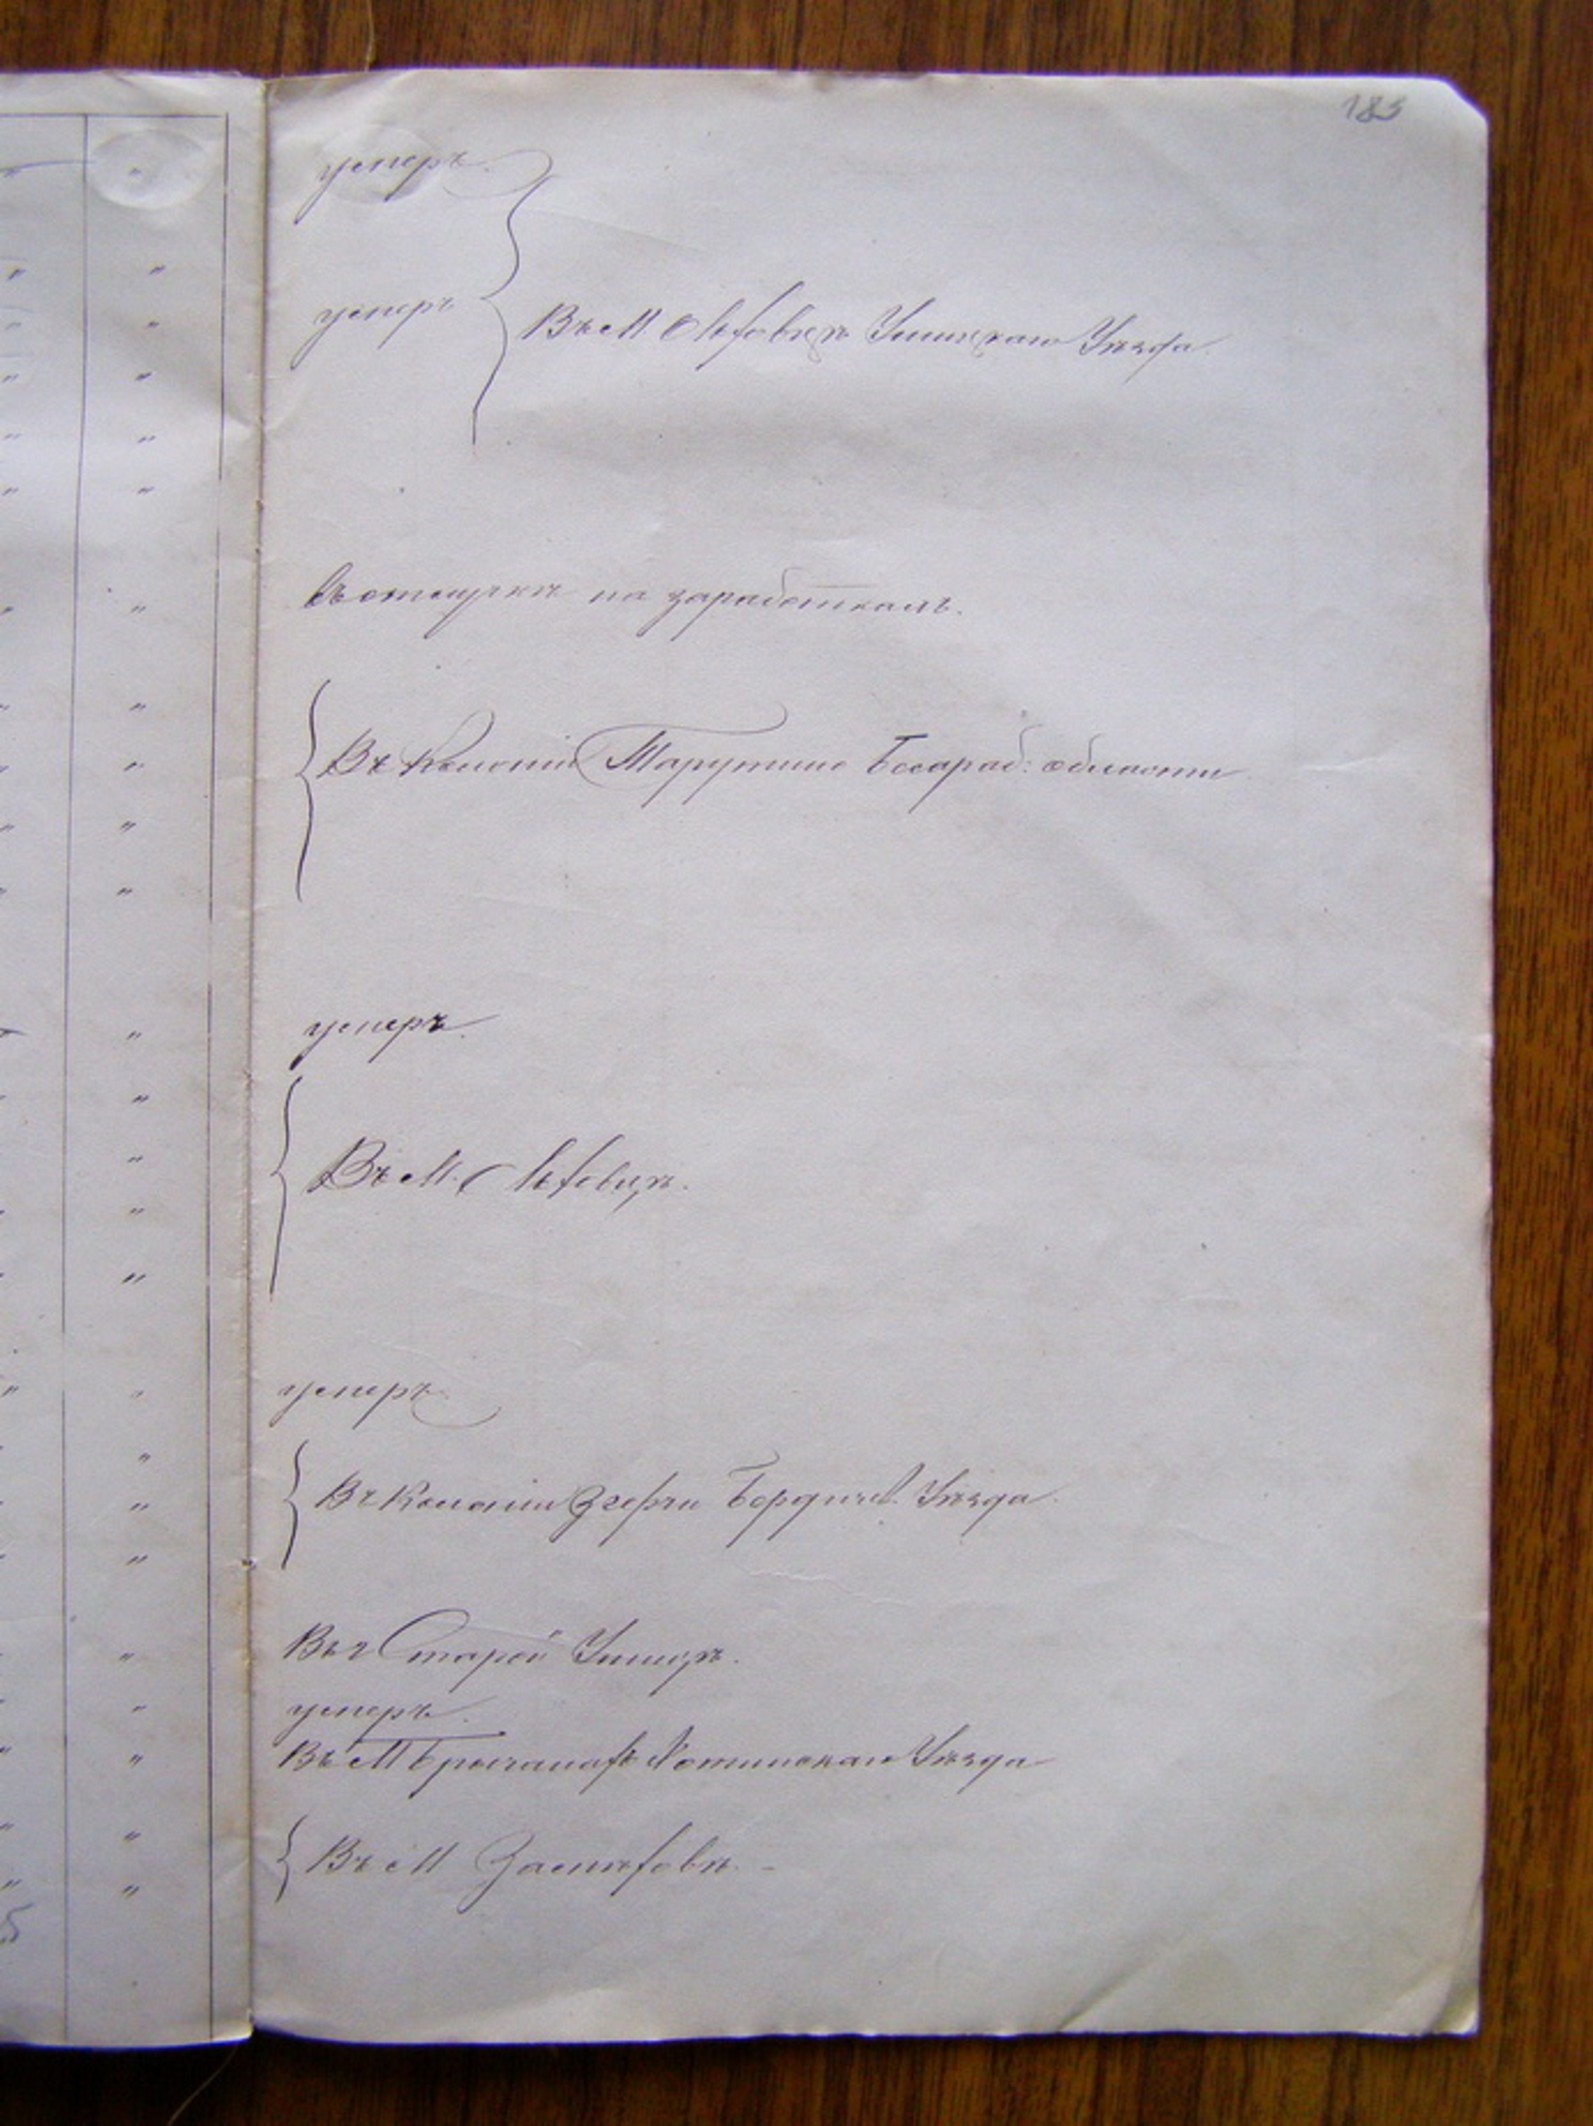 183
умеръ
умеръ
Въ М. Ляховцѣ Ушицкаго Уѣзда
въ отлучкѣ на заработкахъ.
Въ Колоніи Тарутино Бесараб: области
умеръ.
Въ М. Ляховцѣ.
умеръ
Въ Колоніи Бердичев. Уѣзда
Въ г Старой Ушицѣ.
умеръ.
Въ М Бричанахъ Хотинскаго Уѣзда
Въ М